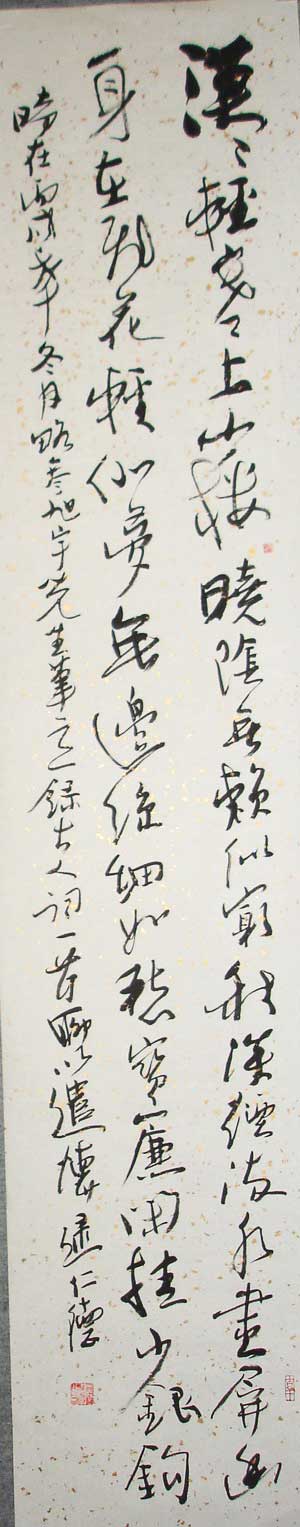 漠〻輕寒上小樓曉陰無賴似窮秋淡煙流水畫屏幽
自在飛花輕似夢無邊絲細如愁寶簾閑挂小銀鉤
時在丙戌年冬月略參旭宇先生筆意錄古人詞一首聊以遣懷 仁德